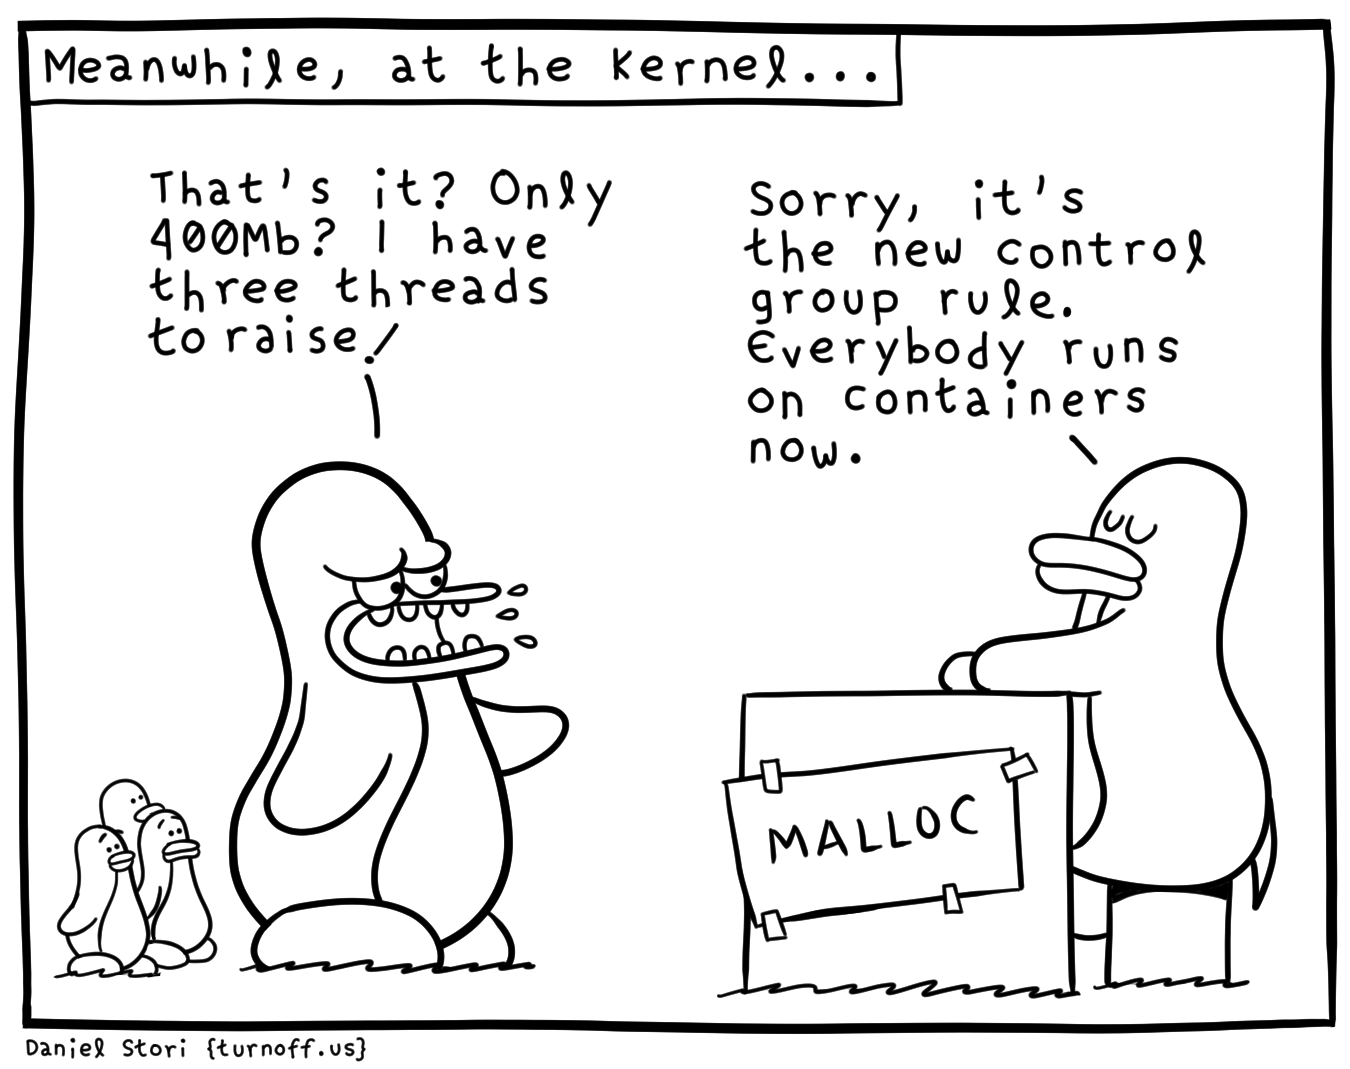 Meanwhile, at the kernel...
That's it? Only
400Mb? I have
three threads
to raise!
Sorry, it's
the new control
group rule.
Everybody runs
on containers
now.
MALLOC
Daniel Stori {turnoff.us}